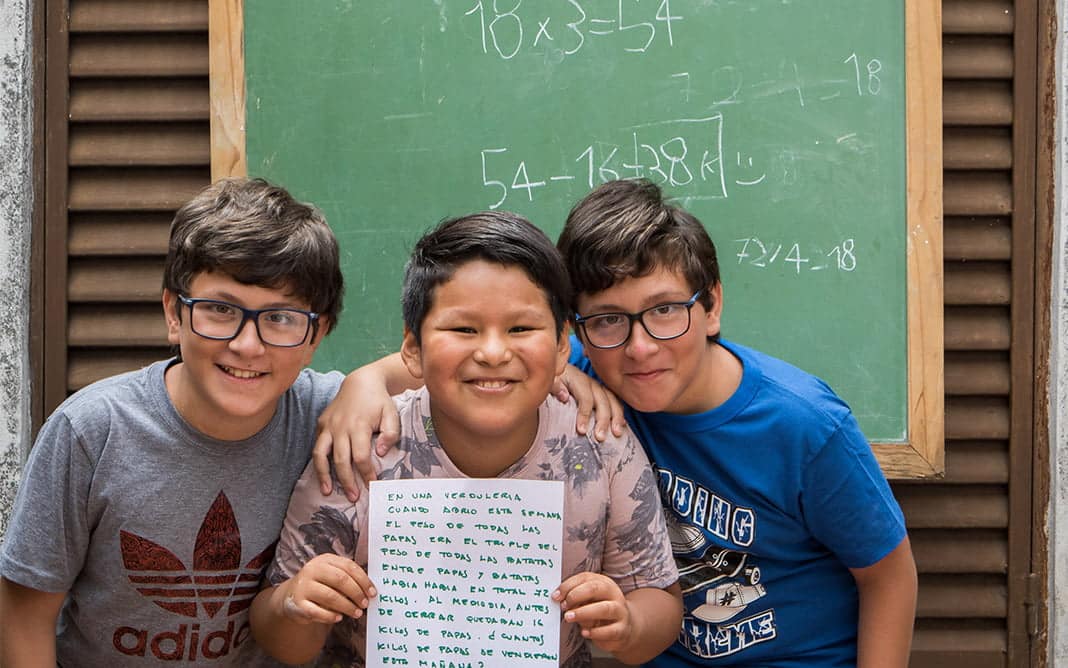 18x3=54
72 4 = 18
54-16=38K
72/4=18
EN UNA VERDULERIA
CUANDO ABRIO ESTA SEMANA
EL PESO DE TODAS LAS
PAPAS ERA EL TRIPLE DEL
PESO DE TODAS LAS BATATAS
ENTRE PAPAS Y BATATAS
HABIA HABIA EN TOTAL 72
KILOS. AL MEDIODIA, ANTES
DE CERRAR QUEDABAN 16
KILOS DE PAPAS. ¿CUANTOS
KILOS DE PAPAS DE VENDIERON
ESTA MAÑANA?
adidas